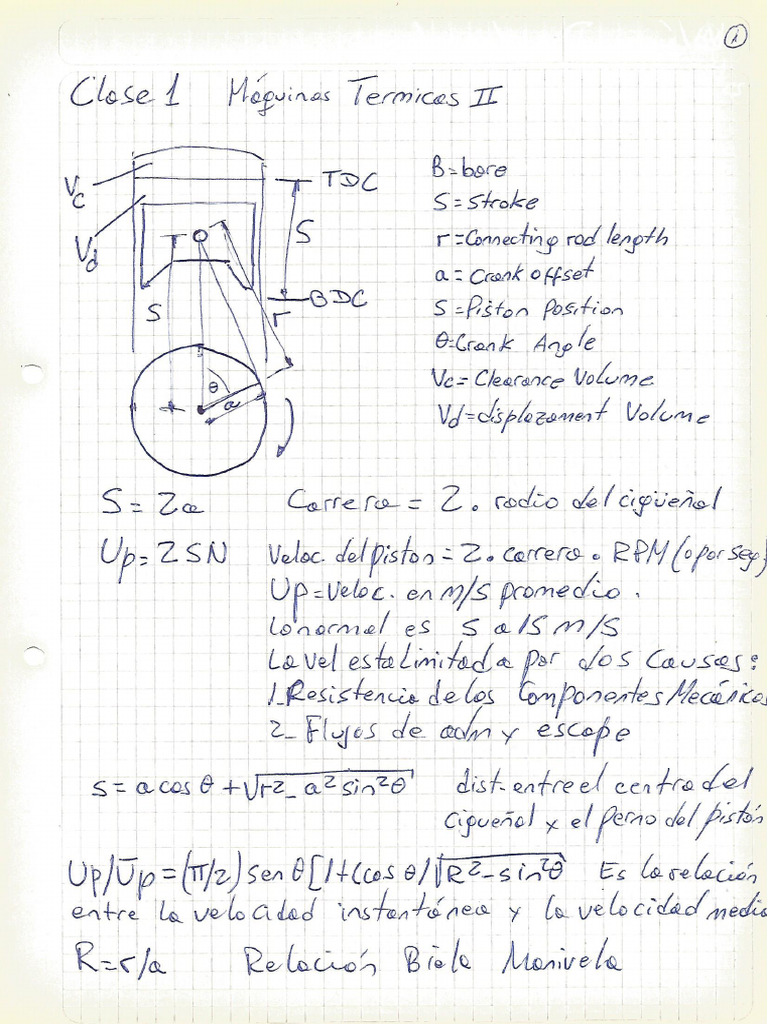 1
Clase 1 Máquinas Termicas II
Vc
Vd
TDC
S
BDC
r
S
θ
a
B=bore
S=Stroke
r=Connecting rod length
a=Crank offset
S=Piston Position
θ=Crank Angle
Vc=Clearance Volume
Vd=displazament Volume
S=2a Carrera = 2. radio del cigüeñal
Up=2SN Veloc. del piston = 2. carrera . RPM (o por seg)
Up=veloc. en m/s promedio.
Lo normal es 5 a 15 m/s
La vel esta limitada por dos causas:
1_Resistencia de los Componentes Mecánicos
2_ Flujos de adm y escape
s=a cos θ + √r²-a² sin²θ dist. entre el centro del
cigueñal y el perno del pistón
Up/Ūp=(π/2) sen θ[1+(cos θ/√R²-sin²θ Es la relación
entre la velocidad instantánea y la velocidad media
R=r/a Relación Biela Manivela